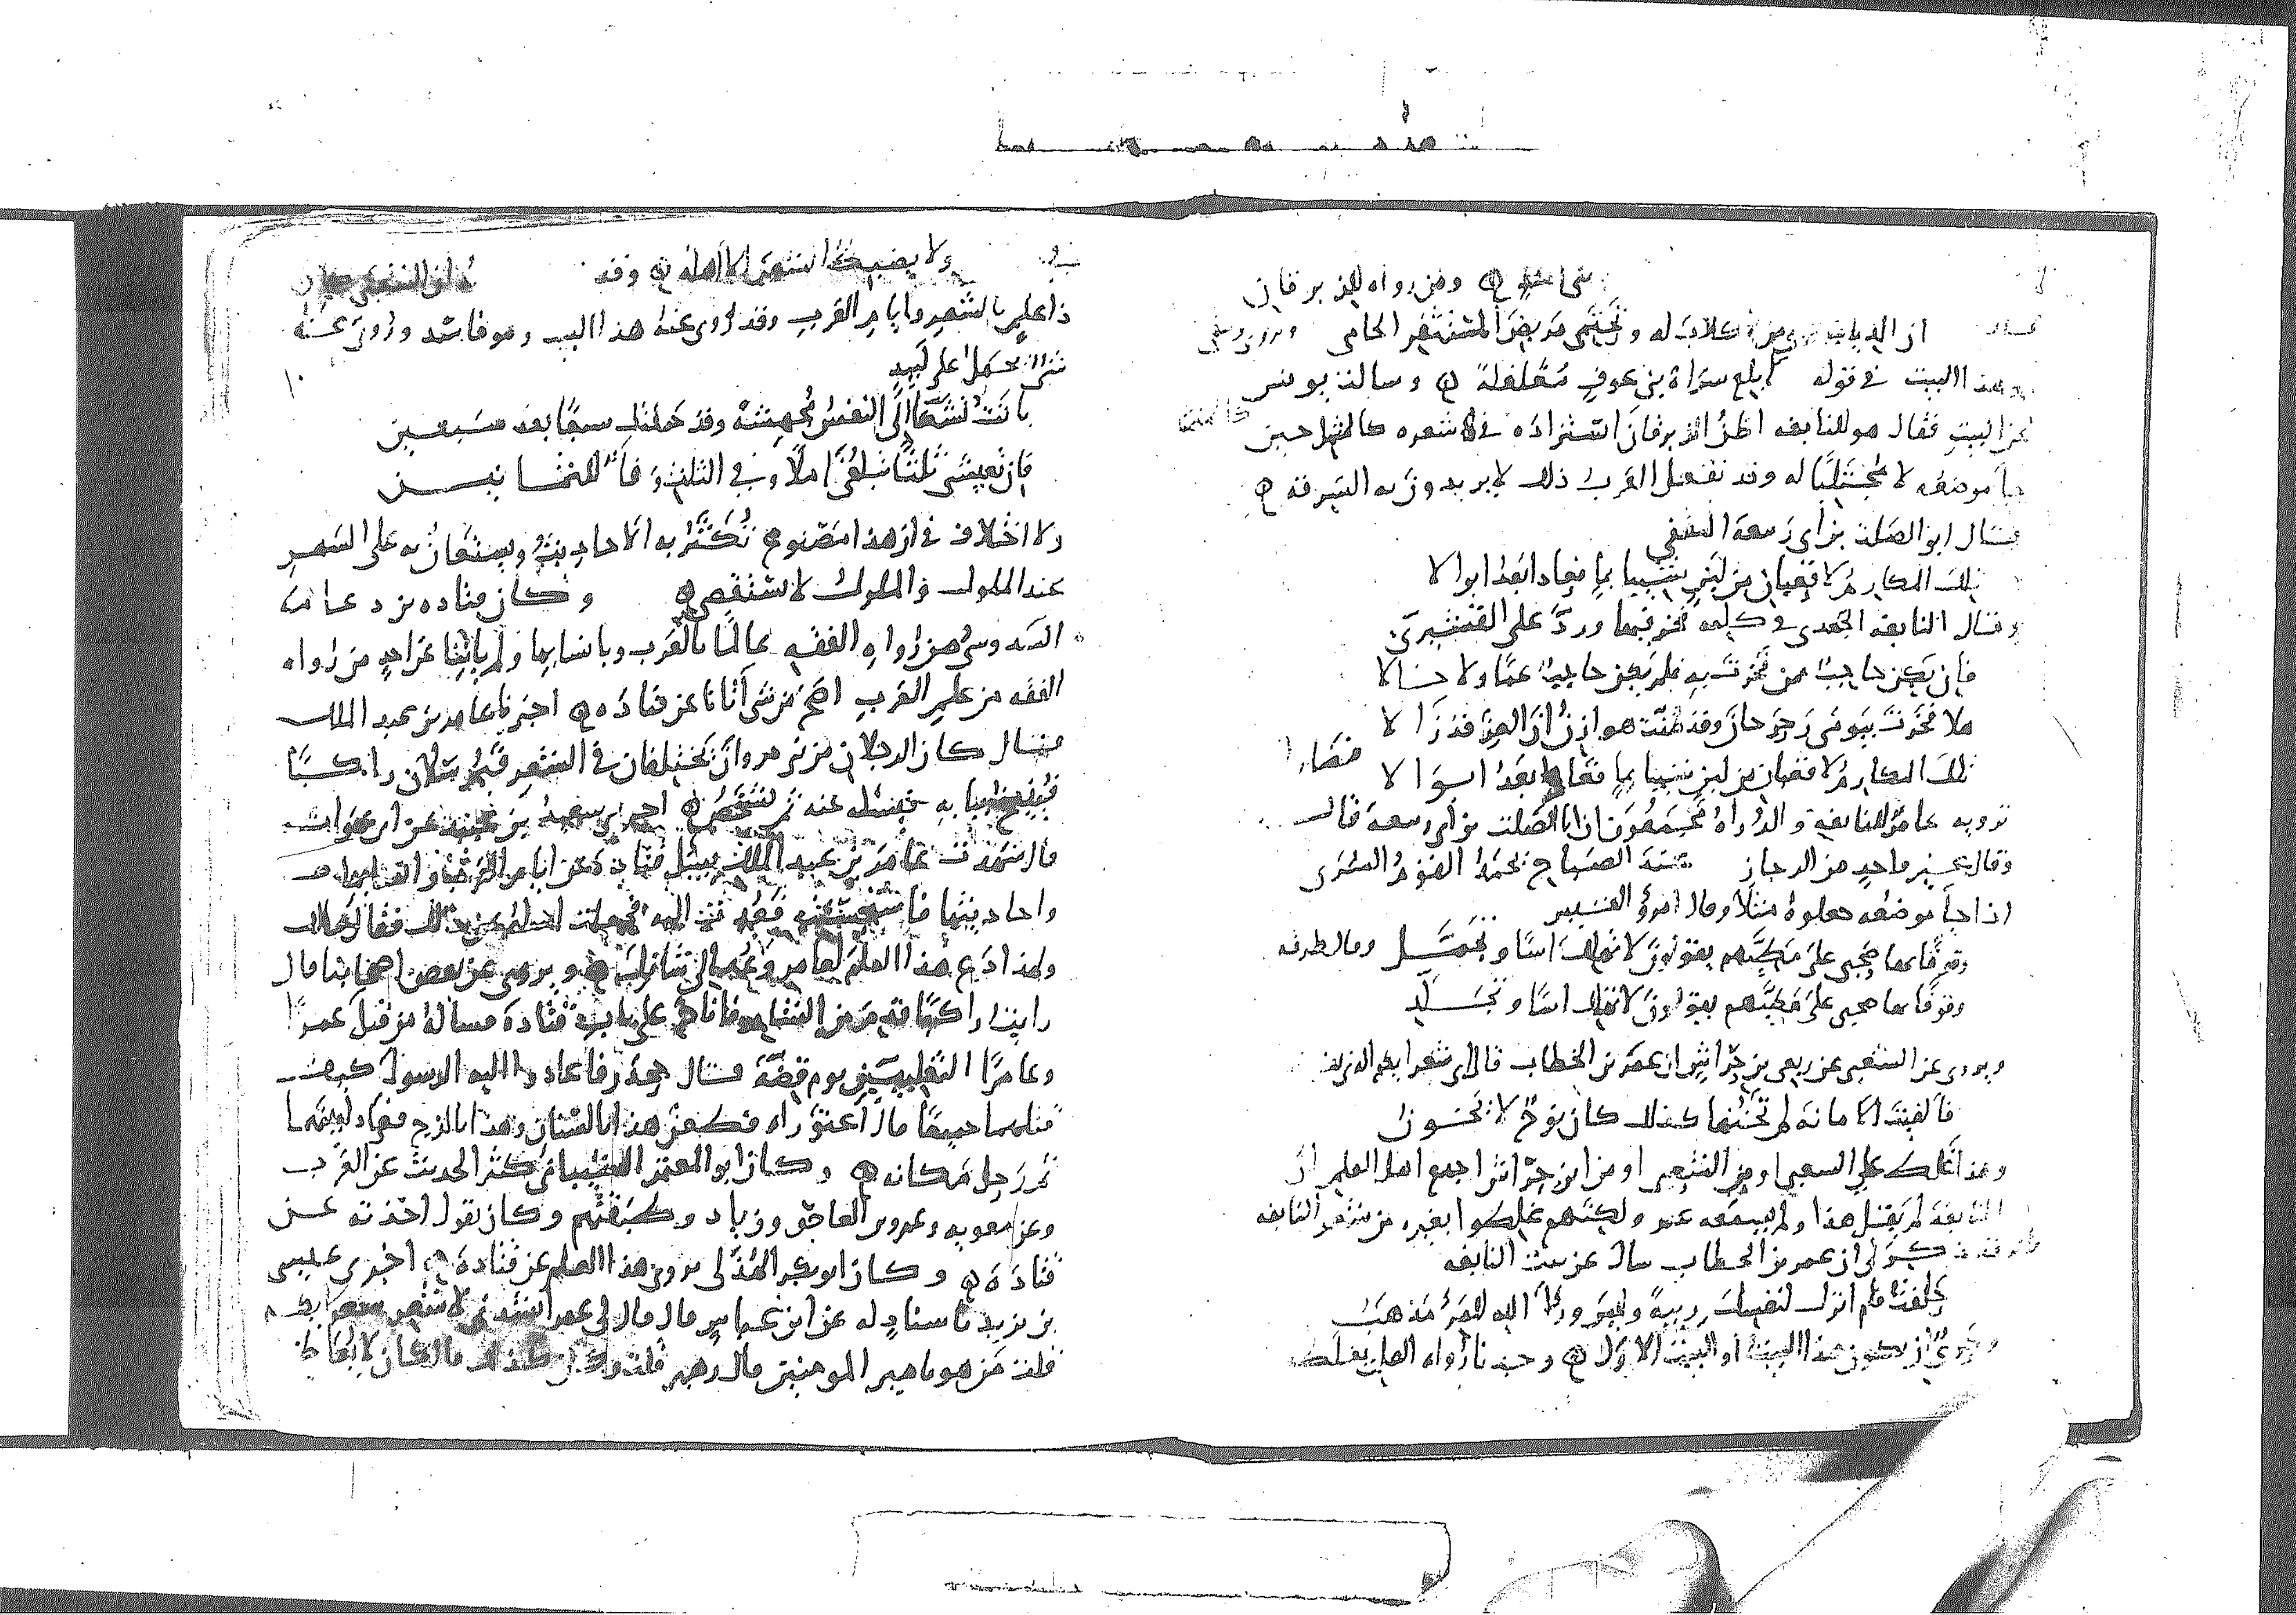 ومن رواه للزبرقان
ان الذياب كلاب له وتحتمى مربض المستثفر الحامى
هذا البيت في قوله ابلغ سراة بني عوف مغلغلة وسالت يونس
عن البيت فقال هو للنابغه اظن الزبرقان استزاده في شعره كالمثل حين
جا موضعه لا مجتلبا له وقد تفعل العرب ذلك لا يريدون به السرقه
وقال ابو الصلت بن ابى ربيعة الثقفى
تلك المكارم لا قعبان من لبن شيبا بما فعادا بعد ابوالا
وقال النابغه الجعدى في كلمه فخر فيها ورد على القشيرى
فان يكن حاجب ممن فخرت به فلم يكن حاجب عما ولا خالا
هلا فخرت بيومى رحرحان وقد ظنت هوازن ان العز قد زالا
تلك المكارم لا قعبان من لبن شيبا بما فعادا بعد ابوالا
ترويه عامر للنابغه والرواة مجمعون ان ابا الصلت بن ابى ربيعة قاله
وقال غير واحد من الرجاز عند الصباح يحمد القوم السرى
اذا جا موضعه جعلوه مثلا وقال امرؤ القيس
وقوفا بها صحبى على مطيهم يقولون لا تهلك اسا وتجمل وقال طرفه
وقوفا بها صحبى على مطيهم يقولون لا تهلك اسا وتجلد
ويروى عن الشعبى عن ربعى بن حراش ان عمر بن الخطاب قال اى شعرايكم الذى يقول
فالفيت الامانة لم تخنها كذلك كان نوح لا يخون
وهذا غلط على الشعبى او من الشعبى او من ابن حراش اجمع اهل العلم ان
النابغة لم يقل هذا ولم يسمعه عمر ولكنهم غلطوا بغيره من شعر النابغه
ذكر لى ان عمر بن الخطاب سال عن بيت النابغه
حلفت فلم اترك لنفسك ريبة وليس ورآ الله للمرء مذهب
وحرى ان يكون هذا البيت او البيت الاول وجدنا رواه العلم يغلطون
ولا يضبط الشعر الا اهله وقد
ذا علم بالشعر وايام العرب وقد روى عنه هذا البيت وهو فاسد وروى عنه
شى يحمل على لبيد
باتت تشكا الى النفس مجهشة وقد حملتك سبعا بعد سبعين
فان تعيشى ثلثا تبلغى املا وفي الثلث وفآ للثمانين
ولا اختلاف في ان هذا مصنوع تكثر به الاحاديث ويستعان به على السهر
عند الملوك والملوك لا تستقصى وكان قتاده بن دعامه
السدوسى من رواه الفقه عالما بالعرب وبانسابها ولم ياتنا عن احد من رواه
الفقه من علم العرب اصح من شى اتانا عن قتاده اخبرنا عامر بن عبد الملك
قال كان الرجلان من بنى مروان يختلفان في الشعر فيرسلان راكبا
فينيخ ببابه فيسئله عنه ثم يشخص اخبرنى سعيد بن عبيد عن ابى عوانه
قال شهدت عامر بن عبد الملك يسئل قتادة عن ايام العرب وانسابها
واحاديثها فاستحسنته فعدت اليه فجعلت اسئله عن ذلك فقال مالك
ولهذا دع هذا العلم لعامر وعد الى شانك ويروى عن بعض اصحابنا قال
رايت راكبا قدم من الشام فاناخ على باب قتادة فساله من قتل عمرا
وعامرا التغلبيين يوم قضة فقال جحدر فاعادوا اليه الرسول كيف
قتلهما جميعا قال اعتوراه فطعن هذا بالسنان وهذا بالزج فعادى بينهما
ثم رحل مكانه وكان ابو المعتمر الشيبانى كثير الحديث عن العرب
وعن معويه وعمرو بن العاص وزياد وطبقتهم وكان يقول اخذته عن
قتادة وكان ابو بكر الهذلى يروى هذا العلم عن قتادة اخبرنى عيسى
بن يزيد باسناد له عن ابن عباس قال قال لى عمر انشدنى لاشعر شعرايكم
قلت من هو يا امير المومنين قال زهير قلت وكان كذلك قال كان لا يعاظل